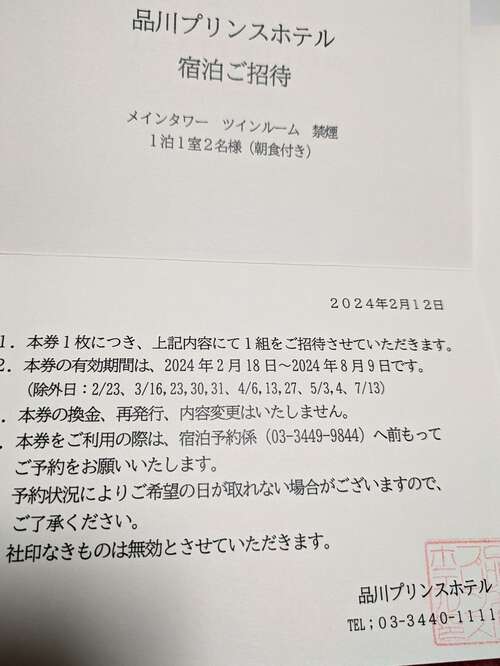 品川プリンスホテル
宿泊ご招待
メインタワー　ツインルーム　禁煙
１泊１室２名様（朝食付き）
２０２４年２月１２日
1．本券１枚につき、上記内容にて１組をご招待させていただきます。
2．本券の有効期間は、2024年２月18日～2024年８月９日です。
（除外日：2/23、3/16,23,30,31、4/6,13,27、5/3,4、7/13）
．本券の換金、再発行、内容変更はいたしません。
．本券をご利用の際は、宿泊予約係（03-3449-9844）へ前もって
ご予約をお願いいたします。
予約状況によりご希望の日が取れない場合がございますので、
ご了承ください。
社印なきものは無効とさせていただきます。
品川プリンスホテル
TEL；０３-３４４０-１１１１